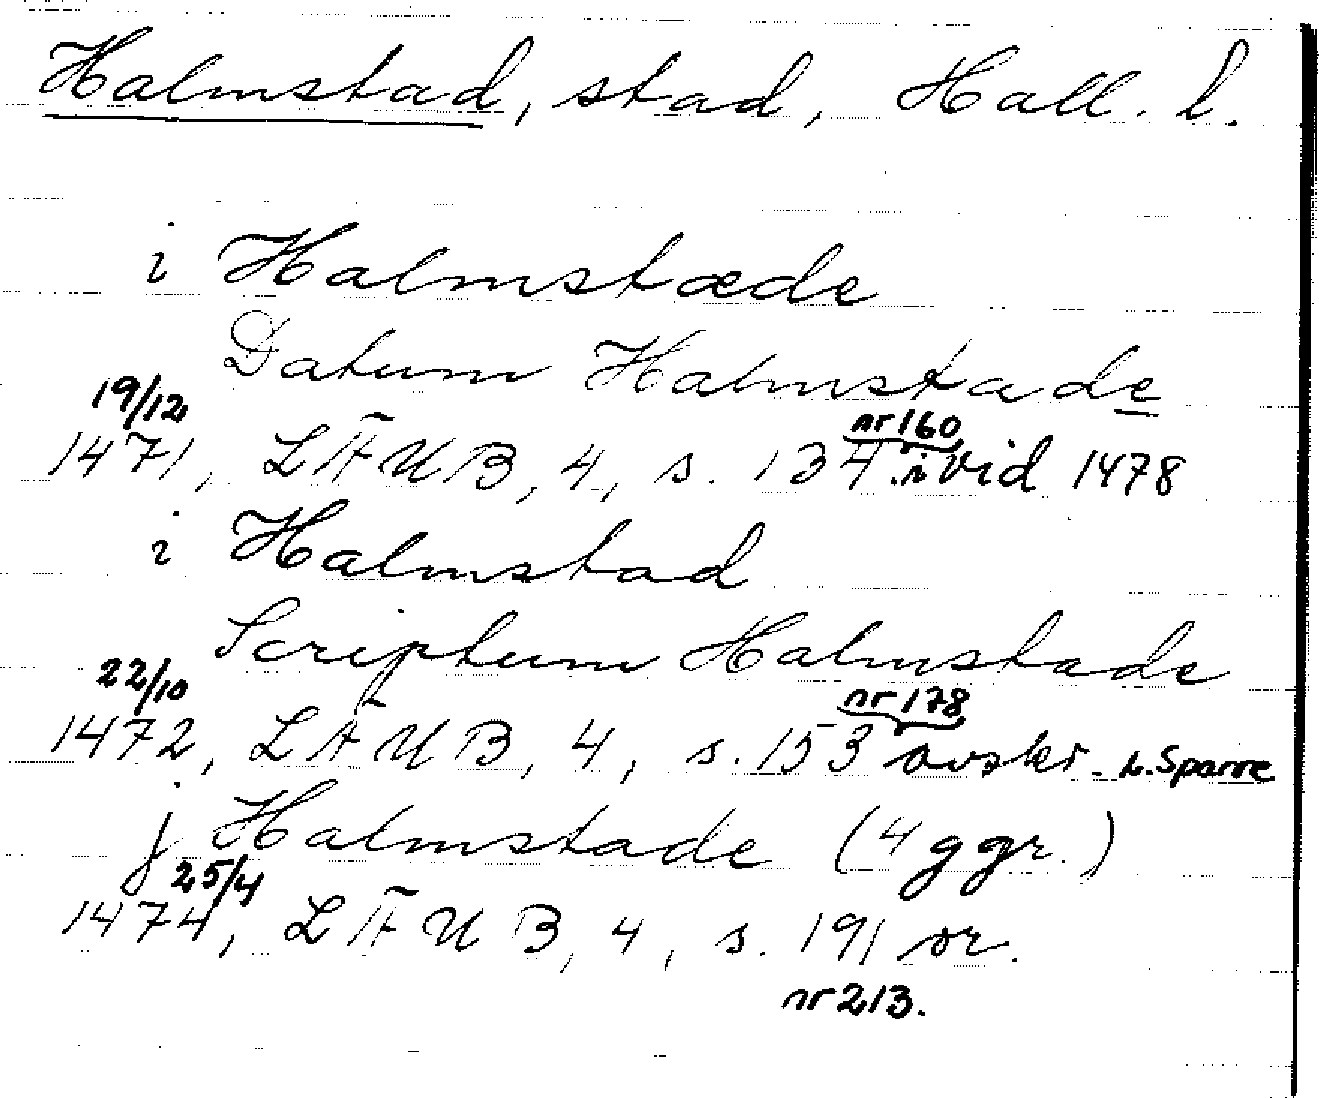 Halmstad, stad, Hall. l.
i Halmstæde
Datum Halmstade
19/12
nr 160
1471, LÄUB, 4, s. 134. i vid 1478
i Halmstad
Scriptum Halmstade
22/10
nr 178
1472, LÄUB, 4, s. 153 avskr. h. Sparre
j Halmstade (4 ggr.)
25/4
1474, LÄUB, 4, s. 191 or.
nr 213.